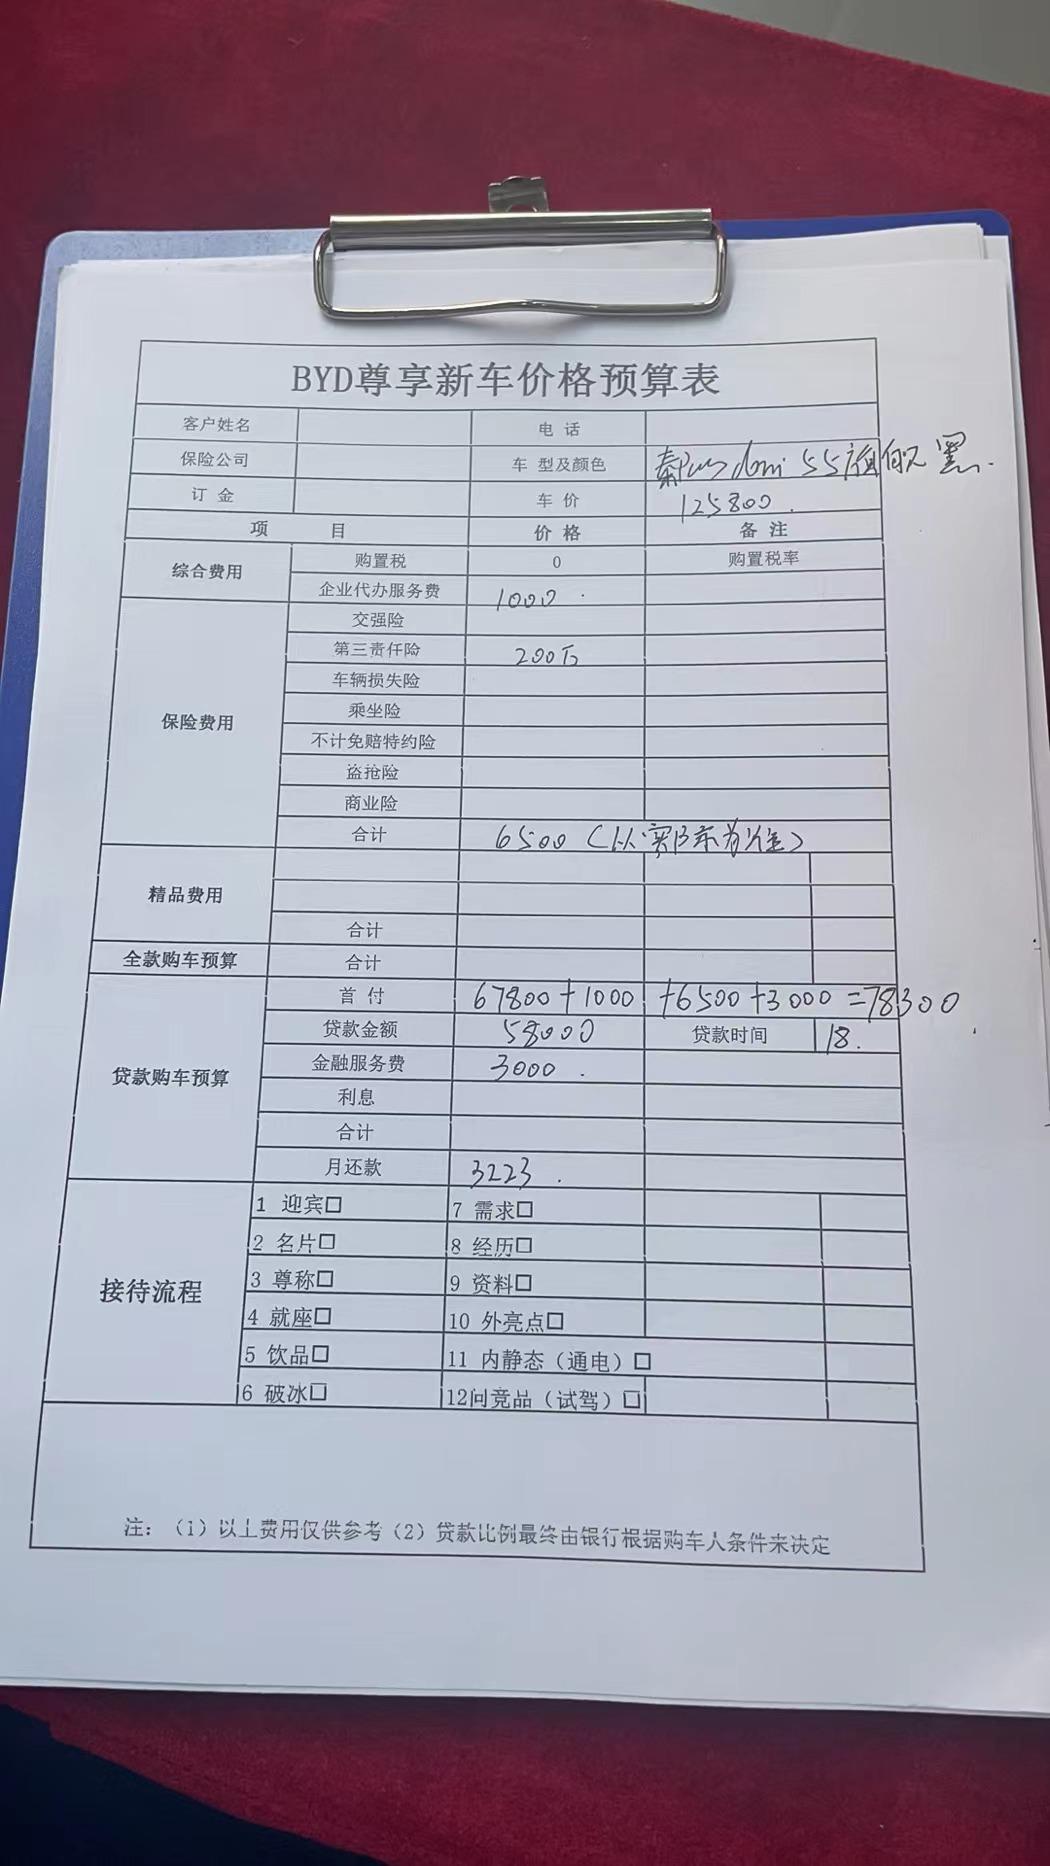 BYD尊享新车价格预算表
客户姓名 电 话
保险公司 车 型及颜色 秦Plus dmi 55 旗舰 黑.
订 金 车 价 125800.
项 目 价 格 备 注
综合费用 购置税 0 购置税率
企业代办服务费 1000.
保险费用 交强险
第三责任险 200万
车辆损失险
乘坐险
不计免赔特约险
盗抢险
商业险
合计 6500(以实际为准)
精品费用
合计
全款购车预算 合计
贷款购车预算 首 付 67800+1000+6500+3000=78300.
贷款金额 58000 贷款时间 18.
金融服务费 3000.
利息
合计
月还款 3223.
接待流程 1 迎宾□ 7 需求□
2 名片□ 8 经历□
3 尊称□ 9 资料□
4 就座□ 10 外亮点□
5 饮品□ 11 内静态（通电）□
6 破冰□ 12问竞品（试驾）□
注：（1）以上费用仅供参考（2）贷款比例最终由银行根据购车人条件来决定